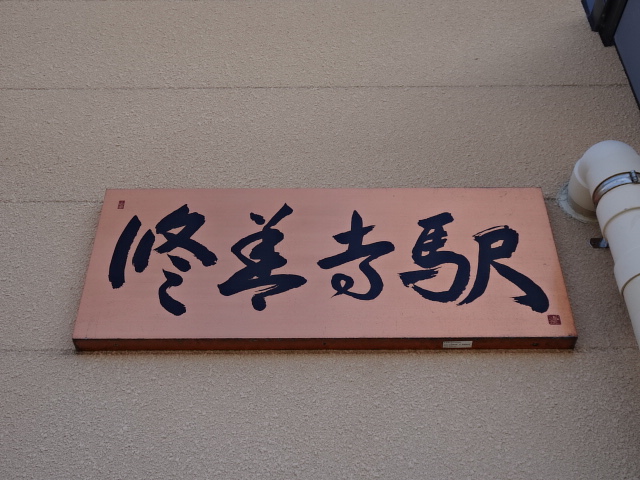 修善寺駅